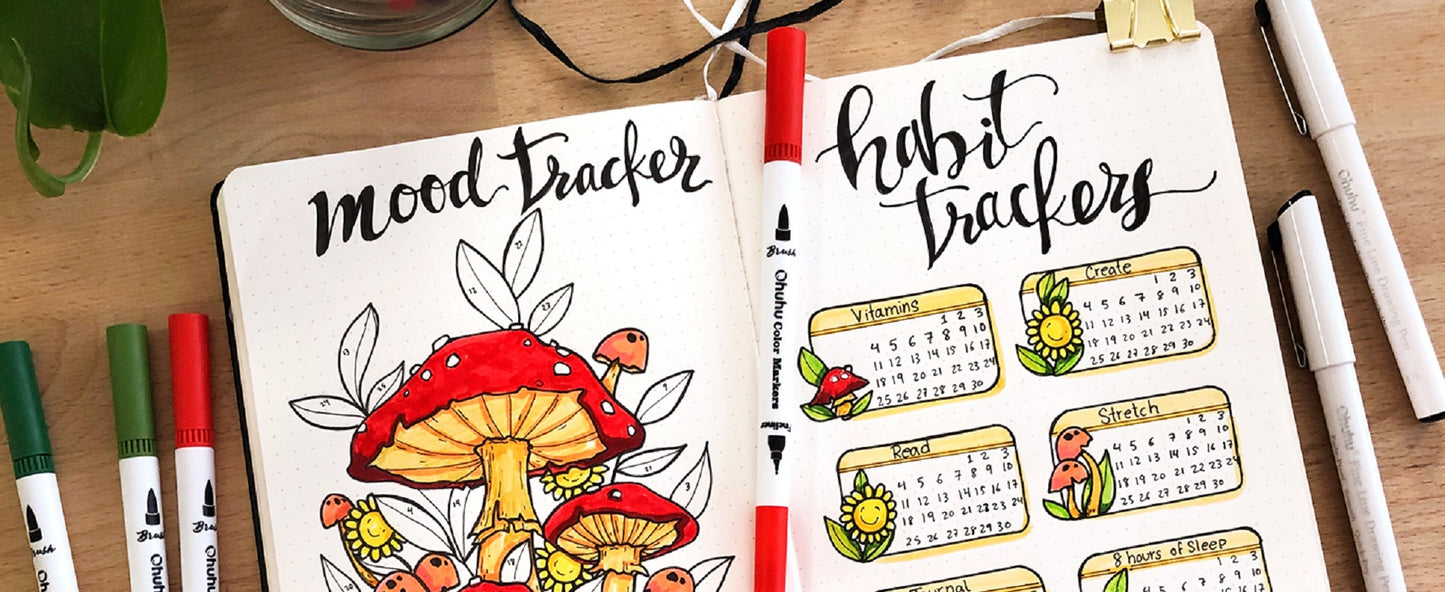 mood tracker
12
23
25
29
9
3
19
4
20
Brush
Ohuhu
Brush
Ohuhu
Brush
Brush
Ohuhu Color Markers
Fineliner
habit
trackers
Vitamins
1 2 3
4 5 6 7 8 9 10
11 12 13 14 15 16 17
18 19 20 21 22 23 24
25 26 27 28 29 30
Create
1 2 3
4 5 6 7 8 9 10
11 12 13 14 15 16 17
18 19 20 21 22 23 24
25 26 27 28 29 30
Read
1 2 3
4 5 6 7 8 9 10
11 12 13 14 15 16 17
18 19 20 21 22 23 24
25 26 27 28 29 30
Stretch
1 2 3
4 5 6 7 8 9 10
11 12 13 14 15 16 17
18 19 20 21 22 23 24
25 26 27 28 29 30
Journal
8 hours of Sleep
1 2 3
Ohuhu Fine Line Drawing Pen
Ohuhu Fine Line Drawing Pen